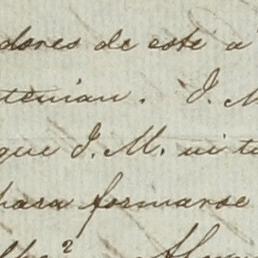 dores de este a
tenian. J. M
que J. M. ni t
para formarse